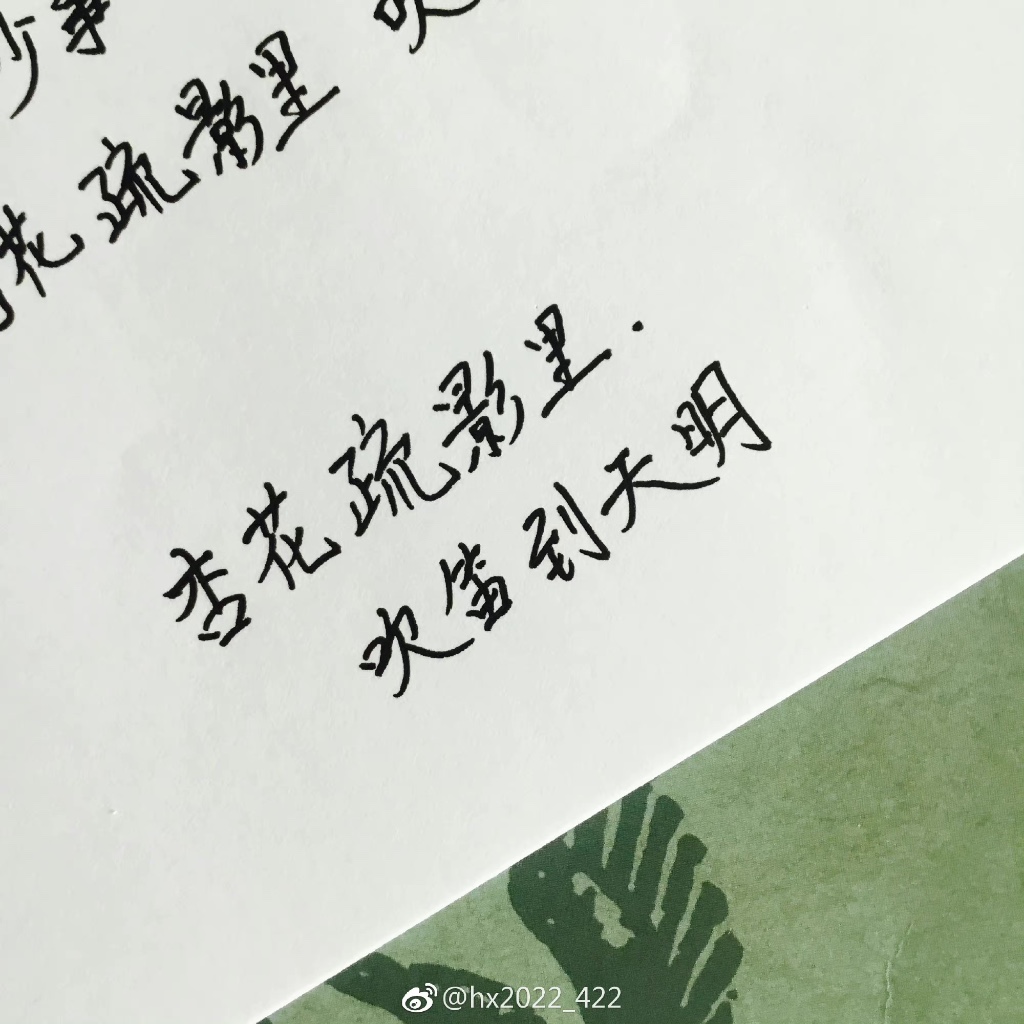 少事 吹
花疏影里
杏花疏影里.
吹笛到天明
@hx2022_422